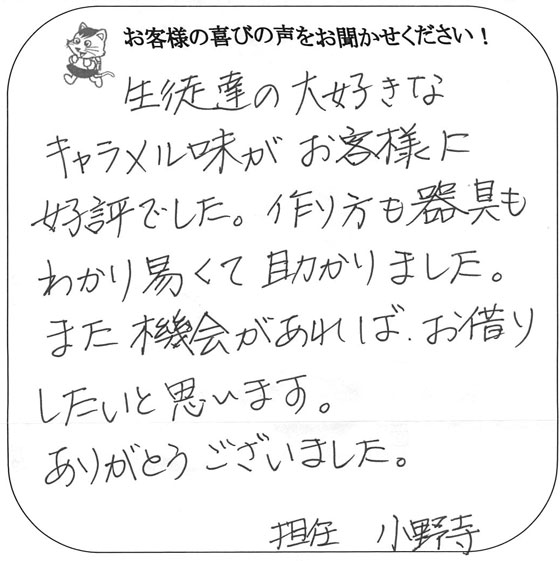 お客様の喜びの声をお聞かせください！
生徒達の大好きな
キャラメル味がお客様に
好評でした。作り方も器具も
わかり易くて助かりました。
また機会があれば、お借り
したいと思います。
ありがとうございました。
担任 小野寺